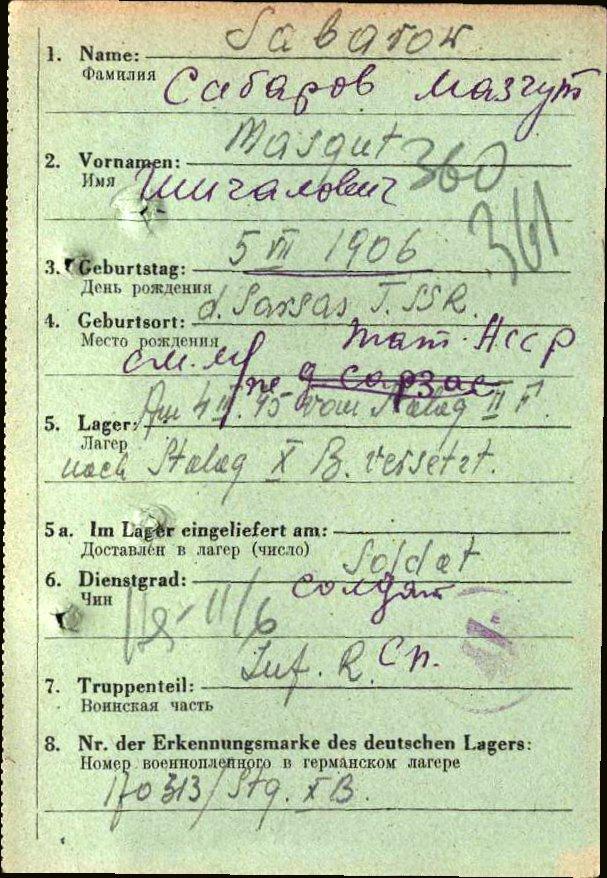 Sabarow
1. Name:
Фамилия Сабаров Мазгут
Masgut
2. Vornamen:
360
Имя Шигалович
361
5 VII 1906
3. Geburtstag:
День рождения
d. Sarsas T.SSR.
4. Geburtsort:
Место рождения Тат. АССР
д Сарзас
Am 4 45 vom Stalag II F.
5. Lager:
Лагерь
nach Stalag X B. versetzt.
5a. Im Lager eingeliefert am:
Доставлен в лагерь (число)
Soldat
6. Dienstgrad:
Чин солдат
11/6
Inf. R. Сп.
7. Truppenteil:
Воинская часть
8. Nr. der Erkennungsmarke des deutschen Lagers:
Номер военнопленного в германском лагере
170313/Stg. XB.